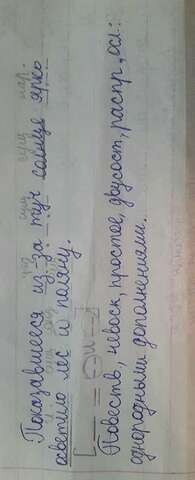 Показавшееся из-за туч солнце ярко
осветило лес и поляну.
[— = О и О]
Повеств, невоск, простое, двусост, распр, осл.:
однородными дополнениями.